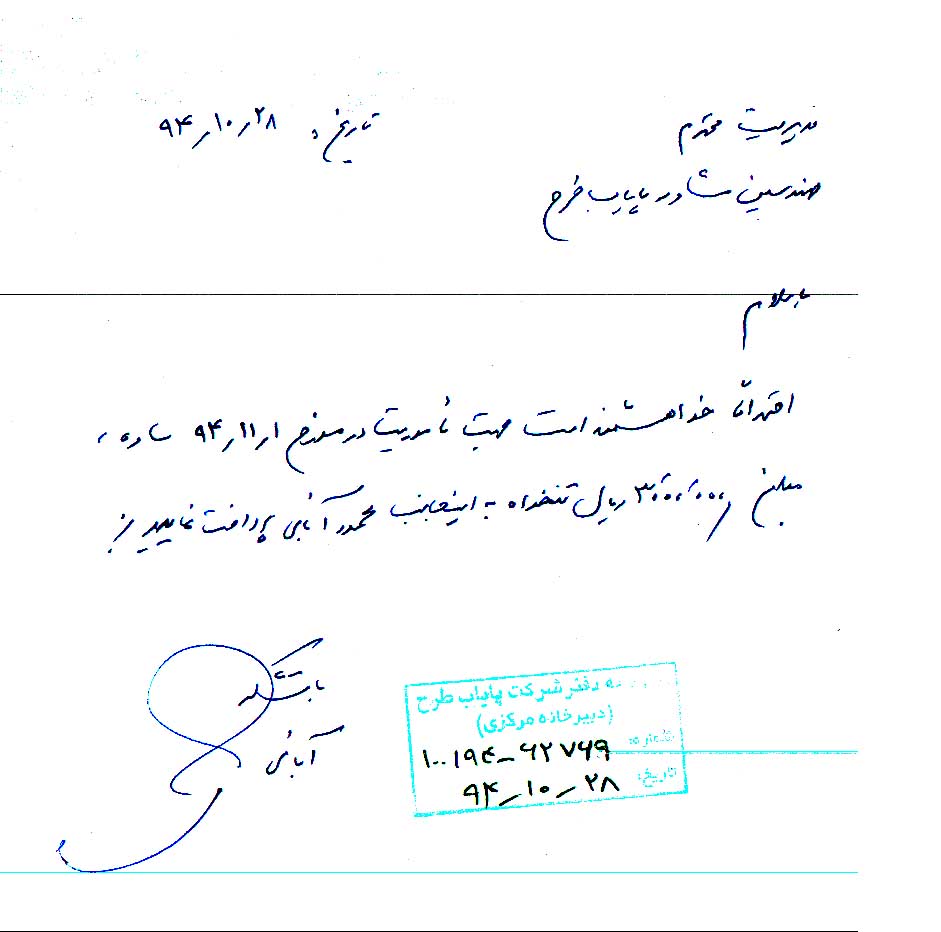 مدیریت محترم
تاریخ: ۹۴/۱۰/۲۸
مهندسین مشاور پایاب طرح
باسلام
احتراماً خواهشمند است جهت مأموریت در مورخ ۹۴/۱۱/۱ ساوه،
مبلغ ۳،۰۰۰،۰۰۰ ریال تنخواه به اینجانب محمود آبائی پرداخت نمایید.
باتشکر
آبائی
به دفتر شرکت پایاب طرح
(دبیرخانه مرکزی)
شماره: ۱۰۰/۹۴-۶۲۷۶۹
تاریخ: ۹۴/۱۰/۲۸